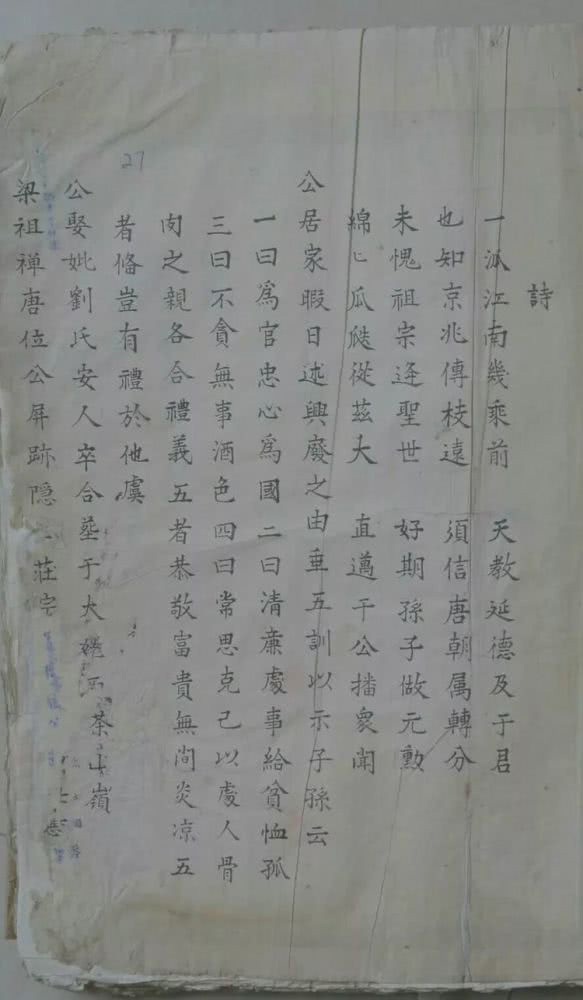 詩
一派江南幾乘前　天教延德及于君
也知京兆傳枝遠　須信唐朝属轉分
未愧祖宗逢聖世　好期孫子做元勳
綿〻瓜瓞從茲大　直邁于公播衆聞
公居家暇日述興廢之由垂五訓以示子孫云
一曰爲官忠心爲國二曰清亷處事給貧恤孤
三曰不貪無事酒色四曰常思克己以處人骨
肉之親各合禮義五者恭敬富貴無間炎凉五
者俻豈有禮於他虞
27
公娶妣劉氏安人卒合塟于大 茶山嶺
梁祖禅唐位公屏跡隱 莊宅